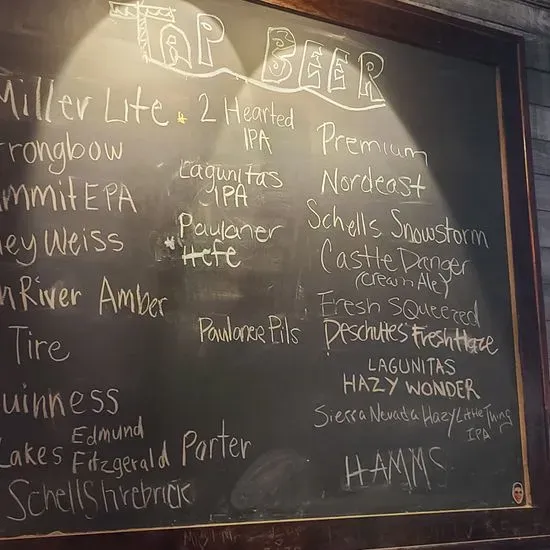 Tap BEER
Miller Lite
rongbow
mmit EPA
ney Weiss
n River Amber
Tire
uinness
Lakes Edmund
Fitzgerald Porter
Schells hrebrick
2 Hearted
IPA
Lagunitas
IPA
Paulaner
Hefe
Paulaner Pils
Premium
Nordeast
Schells Snowstorm
Castle Danger
(Cream Ale)
Fresh Squeezed
Deschutes Fresh Haze
LAGUNITAS
HAZY WONDER
Sierra Nevada Hazy Little Thing
IPA
HAMMS